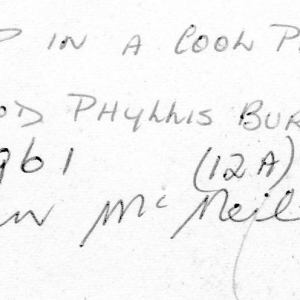 IN A COOL
PHYLLIS BUR
961 (12A)
McNeil